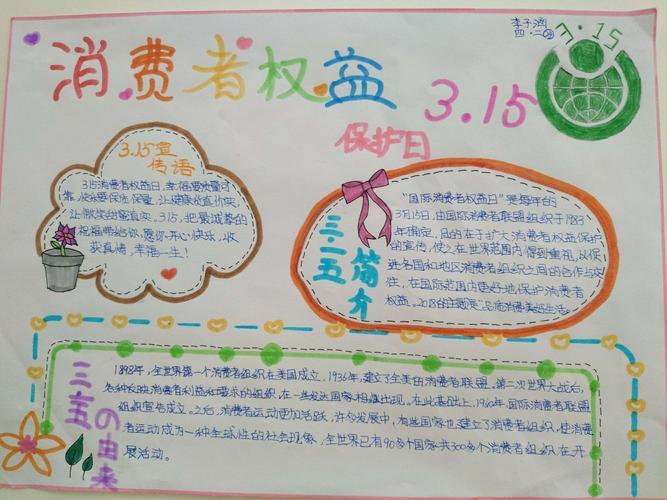 消费者权益
3.15
保护日
李子涵
四.二
3·15
3.15宣
传语
3.15消费者权益日,幸福要质量可
靠,快乐要保洁保量,让健康货真价实,
让微笑甜蜜真实。3.15,把最诚挚的
祝福带给你,愿你开心快乐,收
获真情,幸福一生!
三·一五
简介
"国际消费者权益日"是每年的
3月15日,由国际消费者联盟组织于1983
年确定,目的在于扩大消费者权益保护
的宣传,使之在世界范围内得到重视,以促
进各国和地区消费者组织之间的合作与交
往,在国际范围内更好地保护消费者
权益。2018的主题是"品质消费美好生活。
三五
の由来
1898年,全世界第一个消费者组织在美国成立,1936年,建立了全美的消费者联盟。第二次世界大战后,
各种反映消费者利益和要求的组织,在一些发达国家相继出现。在此基础上,1960年,国际消费者联盟
组织宣告成立。之后,消费者运动更加活跃,许多发展中,有些国家也建立了消费者组织,使消费
者运动成为一种全球性的社会现象,全世界已有90多个国家共300多个消费者组织在开
展活动。